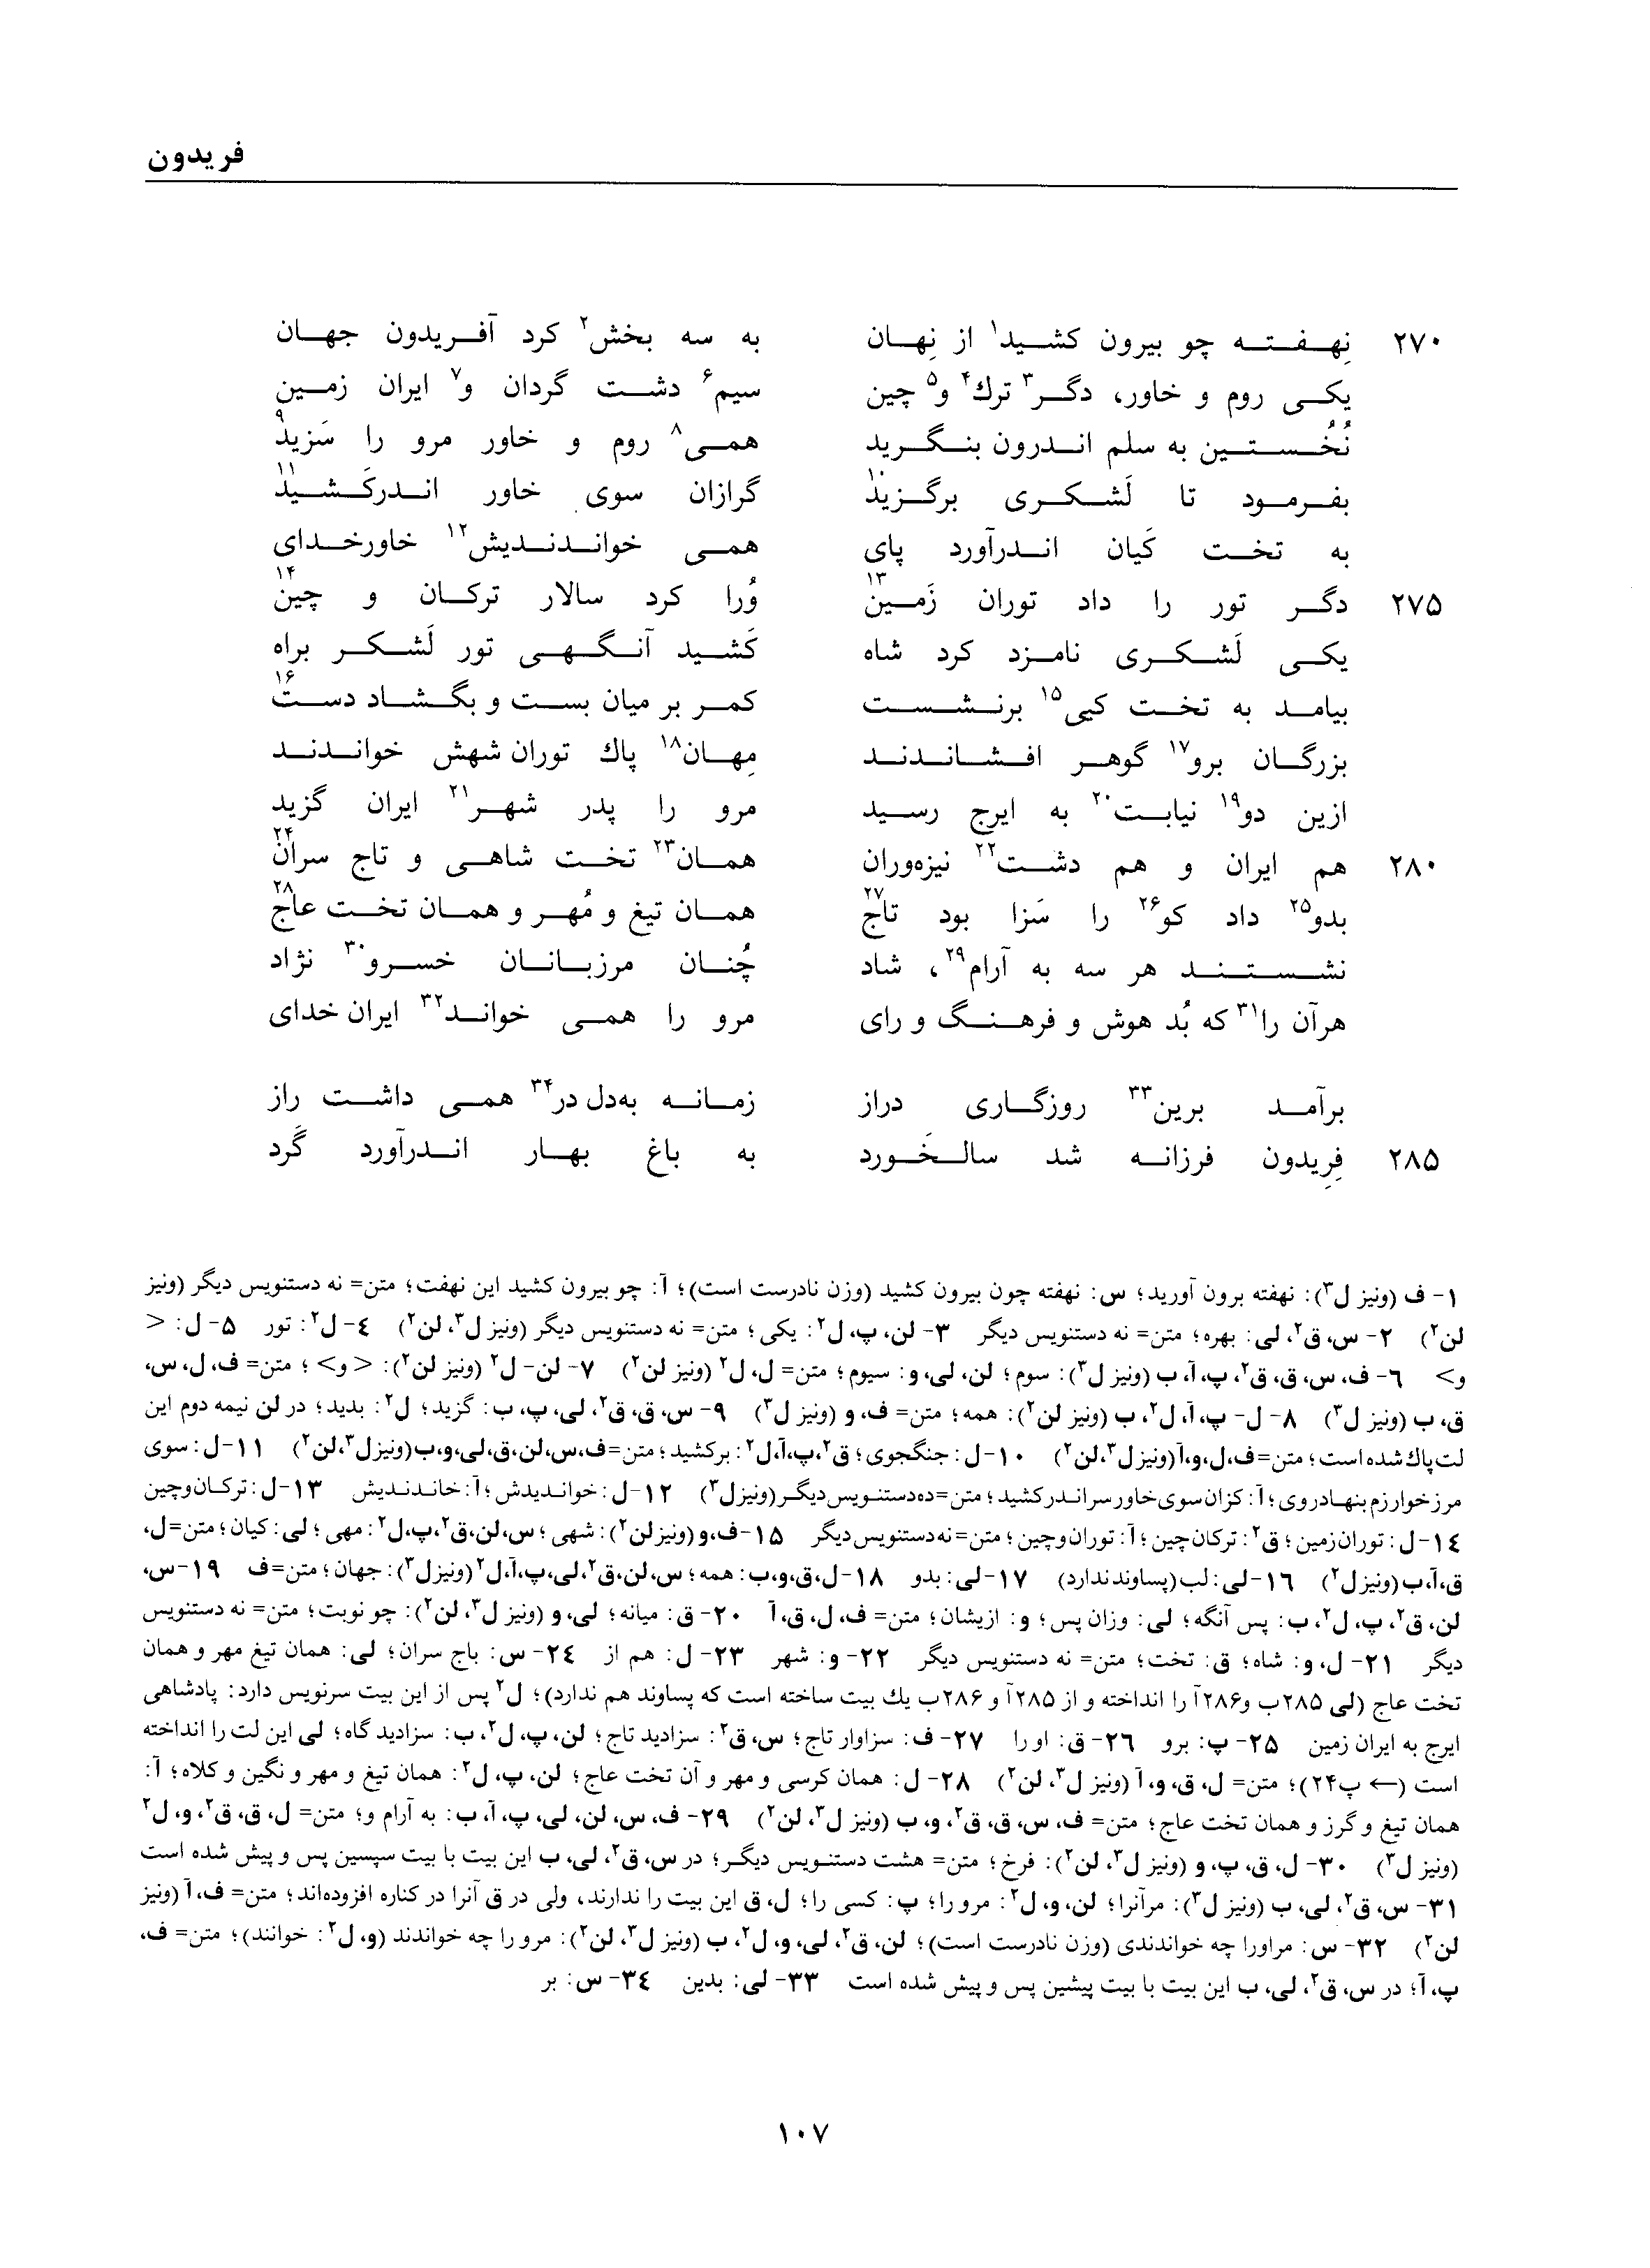 فریدون
۲۷۰ نِهفته چو بیرون کشید۱ از نِهان به سه بخش۲ کرد آفریدون جهان
یکی روم و خاور، دگر۳ ترك۴ و۵ چین سیم۶ دشت گردان و۷ ایران زمین
نُخُستین به سلم اندرون بنگرید همی۸ روم و خاور مرو را سَزید۹
بفرمود تا لَشکری برگزید۱۰ گرازان سوی خاور اندرکَشید۱۱
به تخت کَیان اندرآورد پای همی خواندندیش۱۲ خاورخدای
۲۷۵ دگر تور را داد توران زَمین۱۳ وُرا کرد سالار ترکان و چین۱۴
یکی لَشکری نامزد کرد شاه کَشید آنگهی تور لَشکر براه
بیامد به تخت کیی۱۵ برنشست کمر بر میان بست و بگشاد دست۱۶
بزرگان برو۱۷ گوهر افشاندند مِهان۱۸ پاك توران شهش خواندند
ازین دو۱۹ نیابت۲۰ به ایرج رسید مرو را پدر شهر۲۱ ایران گزید
۲۸۰ هم ایران و هم دشت۲۲ نیزه‌وران همان۲۳ تخت شاهی و تاج سران۲۴
بدو۲۵ داد کو۲۶ را سَزا بود تاج۲۷ همان تیغ و مُهر و همان تخت عاج۲۸
نشستند هر سه به آرام۲۹، شاد چُنان مرزبانان خسرو۳۰ نژاد
هرآن را۳۱ که بُد هوش و فرهنگ و رای مرو را همی خواند۳۲ ایران خدای
برآمد برین۳۳ روزگاری دراز زمانه به‌دل در۳۴ همی داشت راز
۲۸۵ فِریدون فرزانه شد سالخَورد به باغ بهار اندرآورد گَرد
۱- ف (ونیز ل۳): نهفته برون آورید؛ س: نهفته چون بیرون کشید (وزن نادرست است)؛ آ: چو بیرون کشید این نهفت؛ متن= نه دستنویس دیگر (ونیز
لن۲) ۲- س، ق۲، لی: بهره؛ متن= نه دستنویس دیگر ۳- لن، پ، ل۲: یکی؛ متن= نه دستنویس دیگر (ونیز ل۳، لن۲) ۴- ل۲: تور ۵- ل: <
و> ۶- ف، س، ق، ق۲، پ، آ، ب (ونیز ل۳): سوم؛ لن، لی، و: سیوم؛ متن= ل، ل۲ (ونیز لن۲) ۷- لن- ل۲ (ونیز لن۲): < و> ؛ متن= ف، ل، س،
ق، ب (ونیز ل۳) ۸- ل- پ، آ، ل۲، ب (ونیز لن۲): همه؛ متن= ف، و (ونیز ل۳) ۹- س، ق، ق۲، لی، پ، ب: گزید؛ ل۲: بدید؛ در لن نیمه دوم این
لت پاك شده است؛ متن= ف، ل، و، آ (ونیز ل۳، لن۲) ۱۰- ل: جنگجوی؛ ق۲، پ، آ، ل۲: برکشید؛ متن= ف، س، لن، ق، لی، و، ب (ونیز ل۳، لن۲) ۱۱- ل: سوی
مرز خوارزم بنهاد روی؛ آ: کزان سوی خاور سر اندرکشید؛ متن= ده دستنویس دیگر (ونیز ل۳) ۱۲- ل: خواندیدش؛ آ: خاندندیش ۱۳- ل: ترکان و چین
۱۴- ل: توران زمین؛ ق۲: ترکان چین؛ آ: توران و چین؛ متن= نه دستنویس دیگر ۱۵- ف، و (ونیز لن۲): شهی؛ س، لن، ق۲، پ، ل۲: مهی؛ لی: کیان؛ متن= ل،
ق، آ، ب (ونیز ل۲) ۱۶- لی: لب (پساوند ندارد) ۱۷- لی: بدو ۱۸- ل، ق، و، ب: همه؛ س، لن، ق۲، لی، پ، آ، ل۲ (ونیز ل۳): جهان؛ متن= ف ۱۹- س،
لن، ق۲، پ، ل۲، ب: پس آنگه؛ لی: وزان پس؛ و: ازیشان؛ متن= ف، ل، ق، آ ۲۰- ق: میانه؛ لی، و (ونیز ل۳، لن۲): چو نوبت؛ متن= نه دستنویس
دیگر ۲۱- ل، و: شاه؛ ق: تخت؛ متن= نه دستنویس دیگر ۲۲- و: شهر ۲۳- ل: هم از ۲۴- س: باج سران؛ لی: همان تیغ مهر و همان
تخت عاج (لی ۲۸۵ب و۲۸۶آ را انداخته و از ۲۸۵آ و ۲۸۶ب یك بیت ساخته است که پساوند هم ندارد)؛ ل۲ پس از این بیت سرنویس دارد: پادشاهی
ایرج به ایران زمین ۲۵- پ: برو ۲۶- ق: اورا ۲۷- ف: سزاوار تاج؛ س، ق۲: سزادید تاج؛ لن، پ، ل۲، ب: سزادید گاه؛ لی این لت را انداخته
است (← پ۲۴)؛ متن= ل، ق، و، آ (ونیز ل۳، لن۲) ۲۸- ل: همان کرسی و مهر و آن تخت عاج؛ لن، پ، ل۲: همان تیغ و مهر و نگین و کلاه؛ آ:
همان تیغ و گرز و همان تخت عاج؛ متن= ف، س، ق، ق۲، و، ب (ونیز ل۳، لن۲) ۲۹- ف، س، لن، لی، پ، آ، ب: به آرام و؛ متن= ل، ق، ق۲، و، ل۲
(ونیز ل۳) ۳۰- ل، ق، پ، و (ونیز ل۳، لن۲): فرخ؛ متن= هشت دستنویس دیگر؛ در س، ق۲، لی، ب این بیت با بیت سپسین پس و پیش شده است
۳۱- س، ق۲، لی، ب (ونیز ل۳): مرآنرا؛ لن، و، ل۲: مرو را؛ پ: کسی را؛ ل، ق این بیت را ندارند، ولی در ق آنرا در کناره افزوده‌اند؛ متن= ف، آ (ونیز
لن۲) ۳۲- س: مراورا چه خواندندی (وزن نادرست است)؛ لن، ق۲، لی، و، ل۲، ب (ونیز ل۳، لن۲): مرو را چه خواندند (و، ل۲: خوانند)؛ متن= ف،
پ، آ؛ در س، ق۲، لی، ب این بیت با بیت پیشین پس و پیش شده است ۳۳- لی: بدین ۳۴- س: بر
۱۰۷